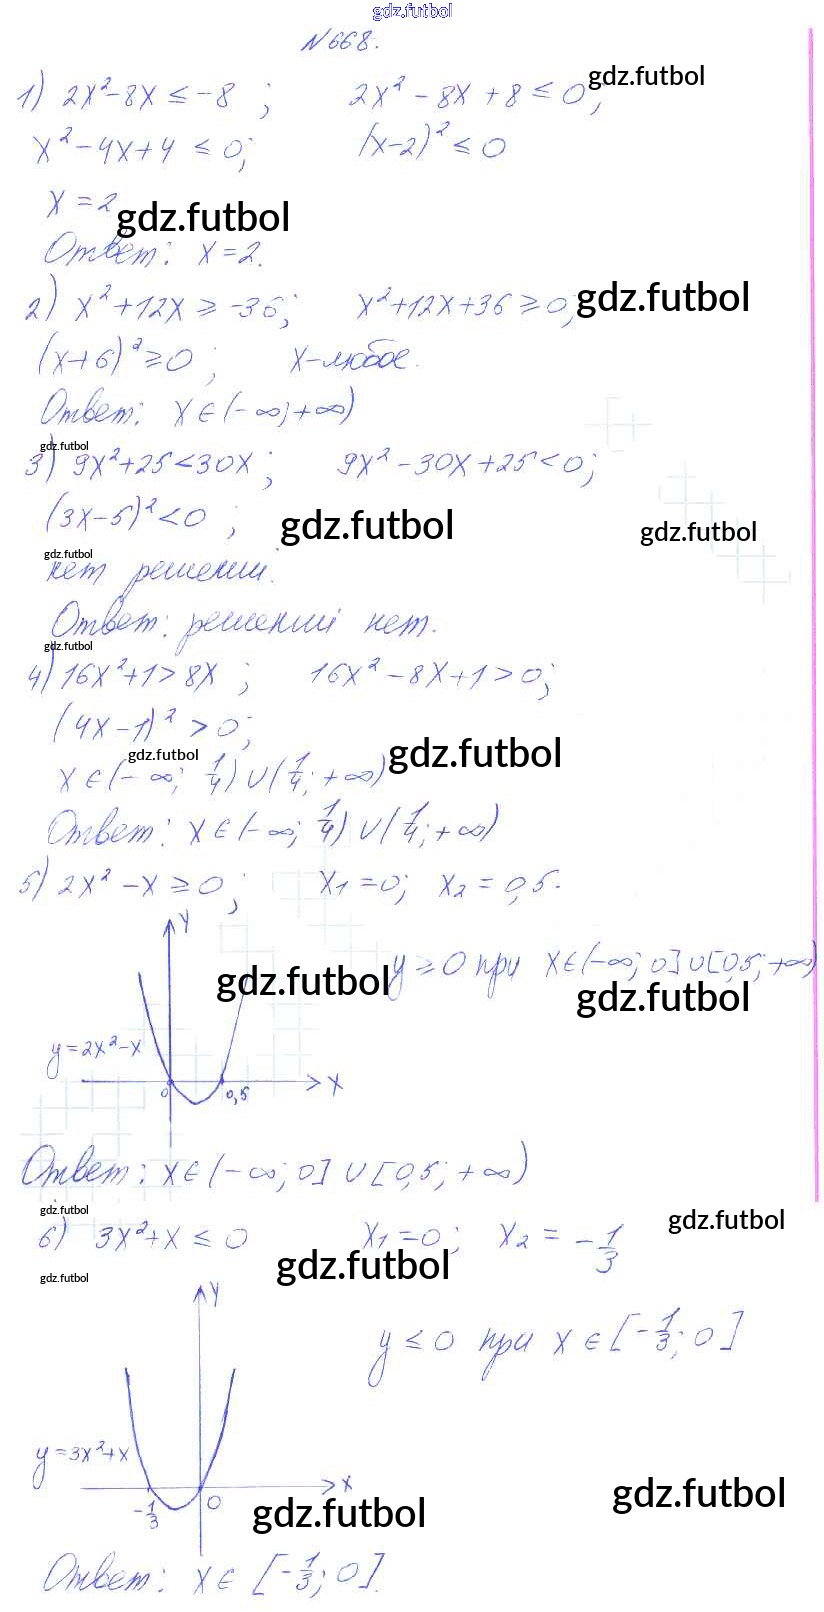 gdz.futbol
N668.
1) 2x²-8x ≤ -8 ; 2x² - 8x + 8 ≤ 0; gdz.futbol
x² - 4x + 4 ≤ 0; (x-2)² ≤ 0
x = 2 gdz.futbol
Ответ: x = 2.
2) x² + 12x ≥ -36; x² + 12x + 36 ≥ 0; gdz.futbol
(x+6)² ≥ 0 ; x-любое.
Ответ: x ∈ (-∞; +∞)
gdz.futbol
3) 9x² + 25 < 30x ; 9x² - 30x + 25 < 0;
(3x-5)² < 0 ; gdz.futbol gdz.futbol
gdz.futbol
нет решений.
Ответ: решений нет.
gdz.futbol
4) 16x² + 1 > 8x ; 16x² - 8x + 1 > 0;
(4x-1)² > 0; gdz.futbol
gdz.futbol
x ∈ (-∞; 1/4) ∪ (1/4; +∞)
Ответ: x ∈ (-∞; 1/4) ∪ (1/4; +∞)
5) 2x² - x ≥ 0; x₁ = 0; x₂ = 0,5.
y
gdz.futbol y ≥ 0 при x ∈ (-∞; 0] ∪ [0,5; +∞)
gdz.futbol
y = 2x² - x
x
0 0,5
Ответ: x ∈ (-∞; 0] ∪ [0,5; +∞)
gdz.futbol gdz.futbol
6) 3x² + x ≤ 0 x₁ = 0; x₂ = -1/3
gdz.futbol gdz.futbol
y
y ≤ 0 при x ∈ [-1/3; 0]
y = 3x² + x
x
-1/3 0 gdz.futbol gdz.futbol
Ответ: x ∈ [-1/3; 0].